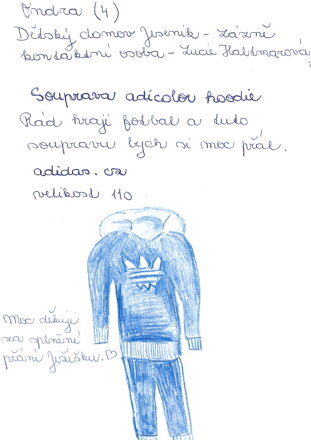 Ondra (4)
Dětský domov Jeseník - zázně
kontaktní osoba - Lucie Haltmarová
Souprava adicolor hoodie
Rád hraji fotbal a tuto
soupravu bych si moc přál.
adidas.cz
velikost 110
Moc děkuji
za splnění
přání Ježíšku.♡